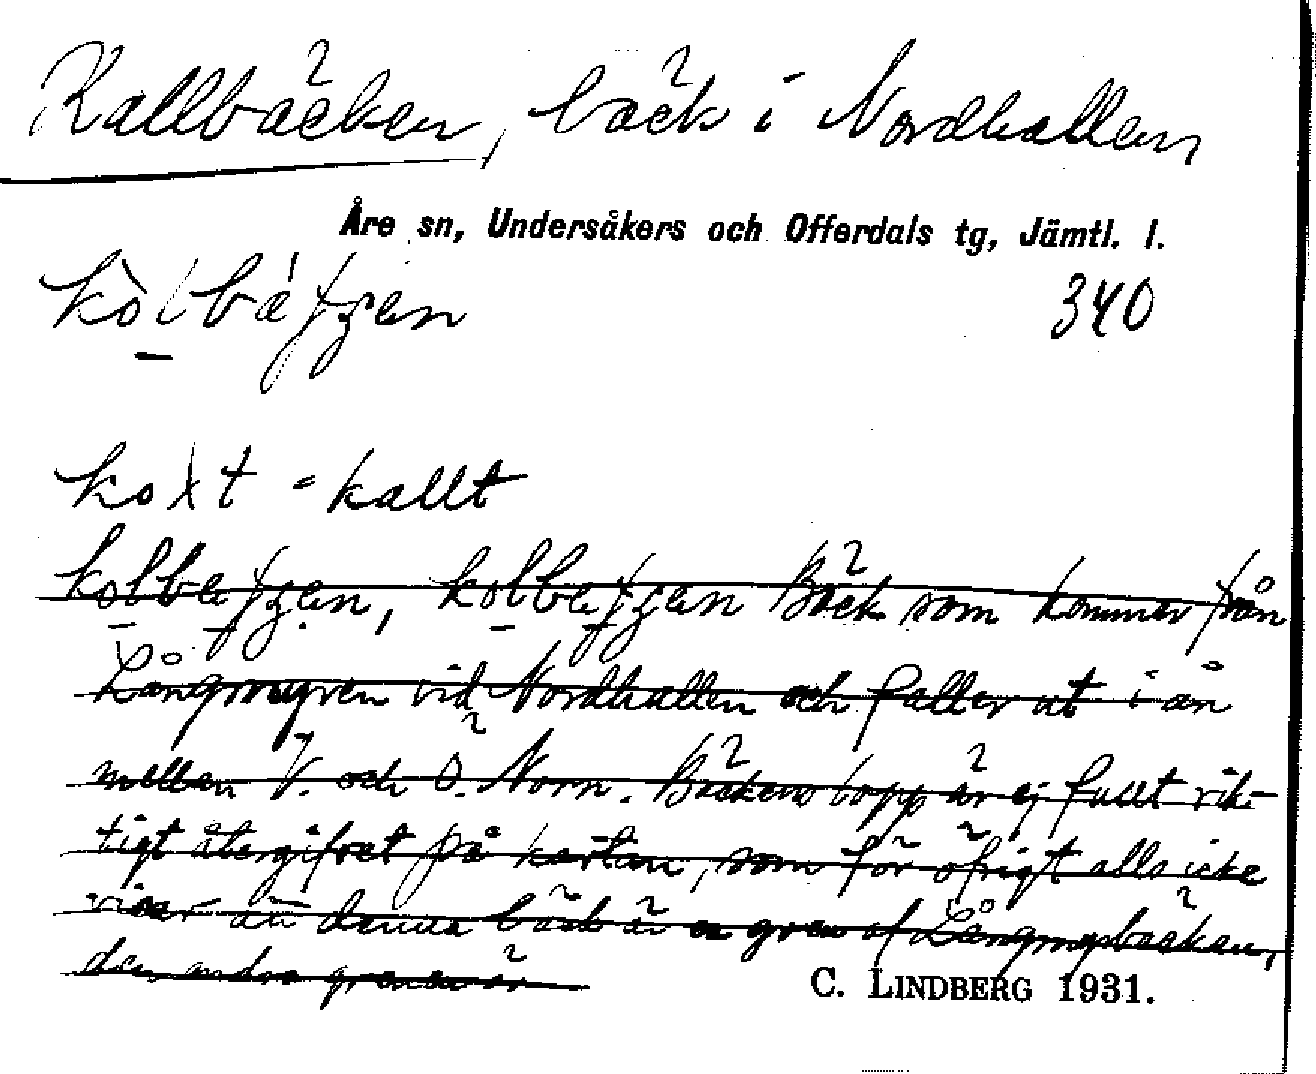 Kallbäcken, bäck i Nordhallen
Åre sn, Undersåkers och Offerdals tg, Jämtl. l.
340
= kallt
Bäck som kommer från
Långmyren vid Nordhallen och faller ut i ån
mellan V. och Ö. Norn. Bäckens lopp är ej fullt rik-
tigt återgifvet på kartan, som för öfrigt alls icke
visar att denna bäck är en gren af Långmyrbäcken,
den andra grenen är
C. LINDBERG 1931.